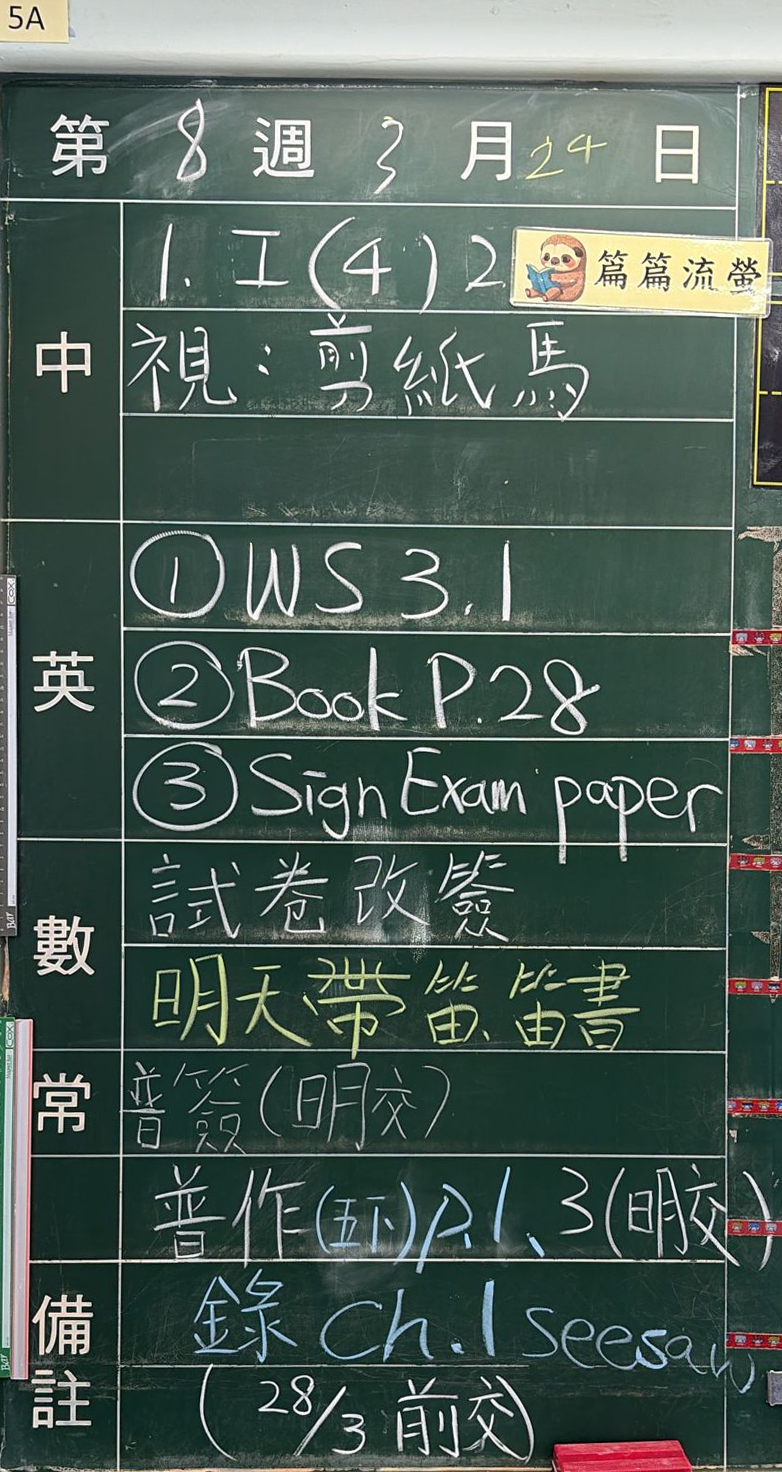 5A
第 8 週 3 月 24 日
中
1. 工(4) 2. 篇篇流螢
視：剪紙馬
英
① WS 3.1
② Book P.28
③ Sign Exam paper
數
試卷改簽
明天帶笛、笛書
常
普簽(明交)
普作(五下)p.1、3(明交)
備註
錄 Ch.1 seesaw
(28/3 前交)